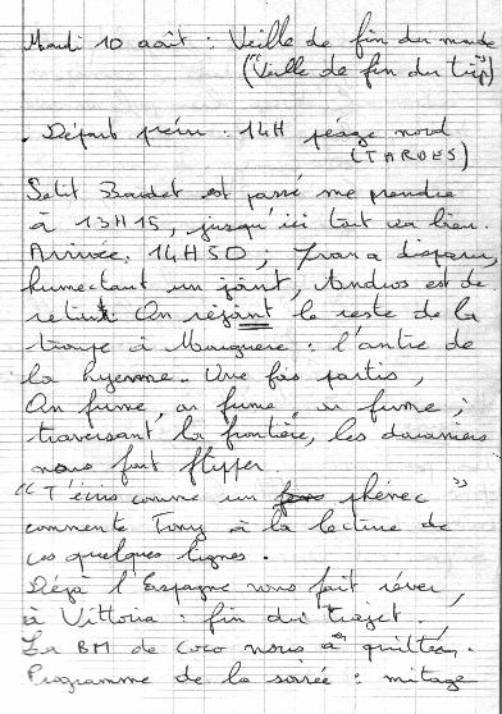 Mardi 10 août : Veille de fin du monde
("Veille de fin du trip")
. Départ prévu : 14H péage nord
(TARBES)
Petit Baudet est passé me prendre
à 13H15, jusqu'ici tout va bien.
Arrivée : 14H50 ; a disparu,
humectant un joint, Andros est de
retour. On réjoint le reste de la
troupe à Mouguere : l'antre de
la hyenne. Une fois partis,
On fume, on fume, on fume ;
traversant la frontière, les douaniers
nous font flipper.
"T'écris comme un phénec"
commente Tony à la lecture de
ces quelques lignes.
Déjà l'Espagne nous fait rêver,
à Vittoria : fin du trajet.
La BM de Coco nous a quittés.
Programme de la soirée : mitage